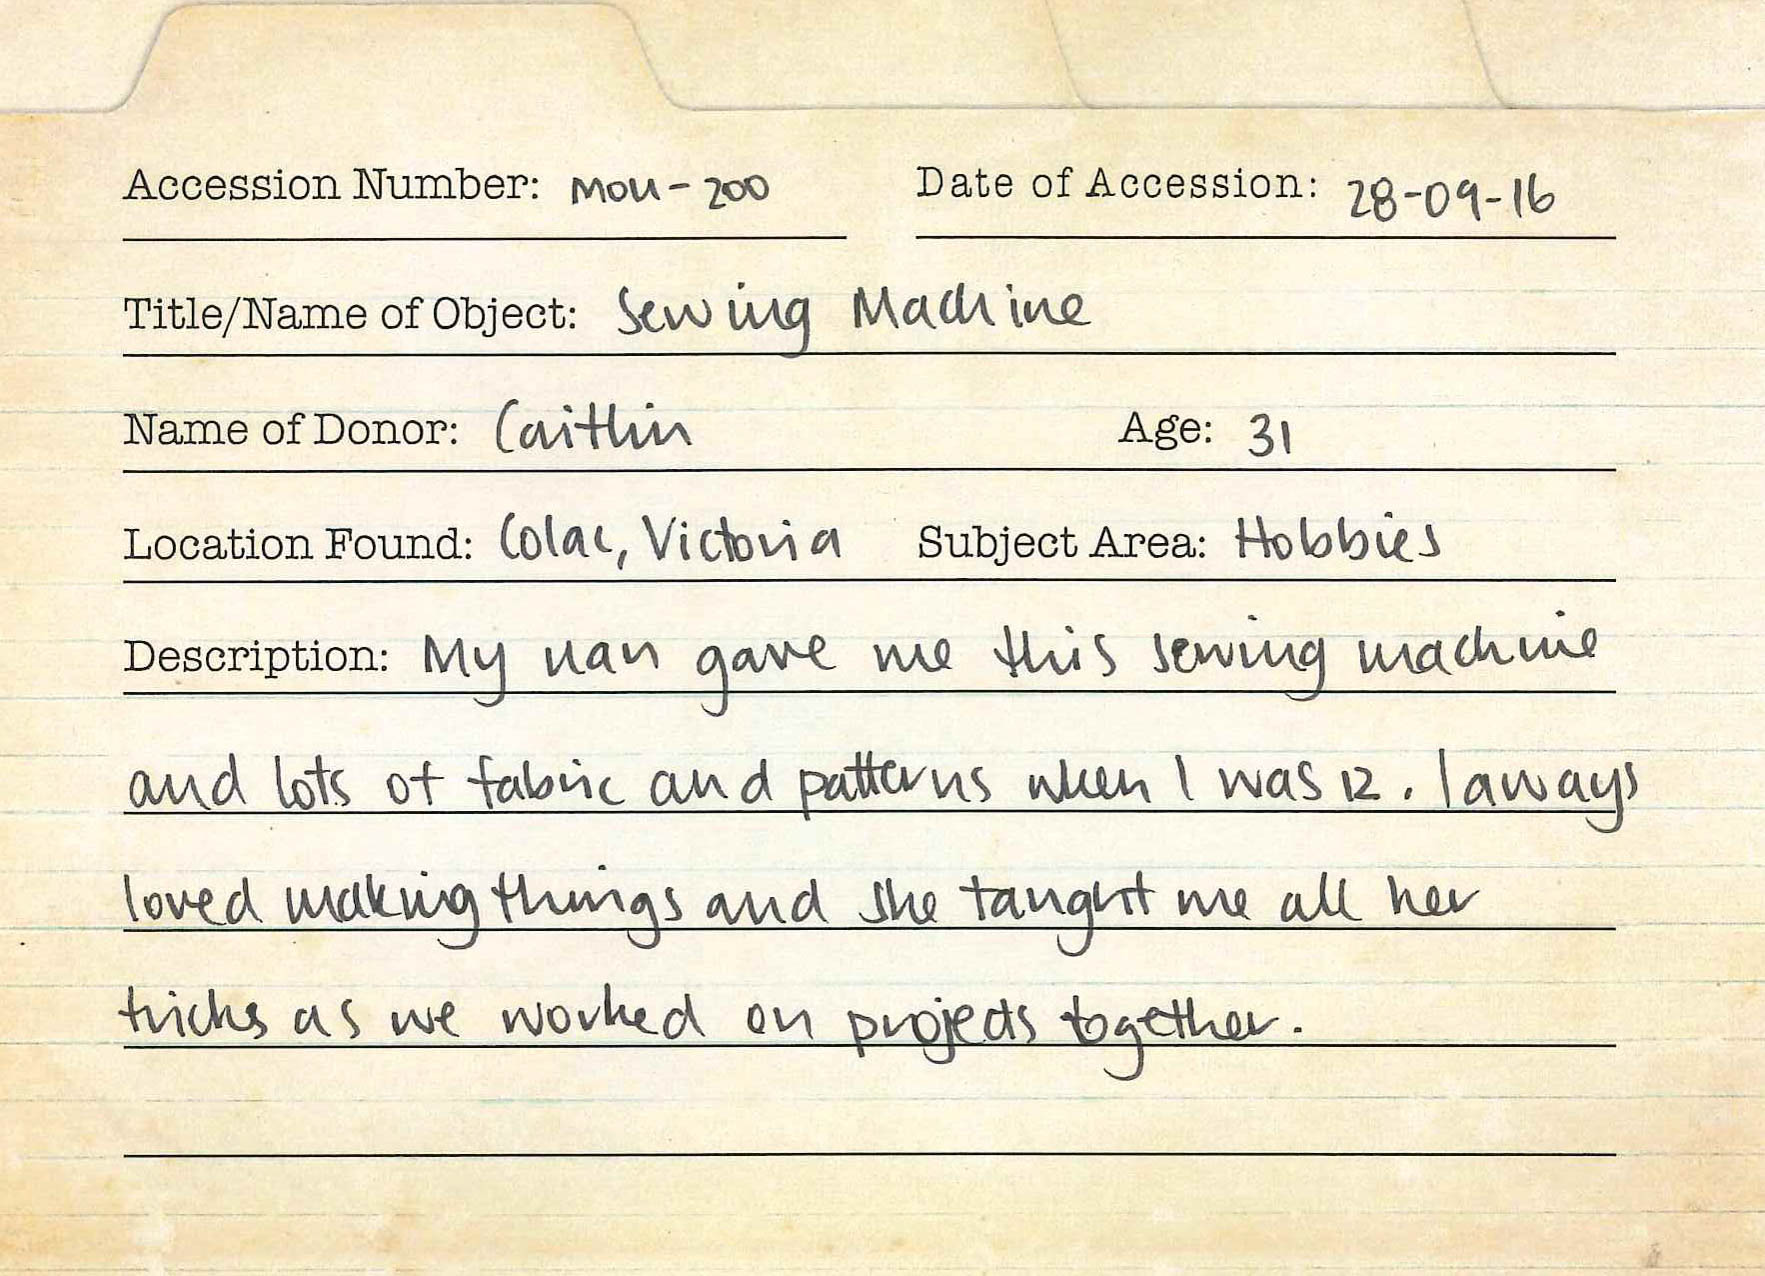 Accession Number: MOU-200 Date of Accession: 28-09-16
Title/Name of Object: Sewing Machine
Name of Donor: Caitlin Age: 31
Location Found: Colac, Victoria Subject Area: Hobbies
Description: My nan gave me this sewing machine
and lots of fabric and patterns when I was 12. I aways
loved making things and she taught me all her
tricks as we worked on projects together.